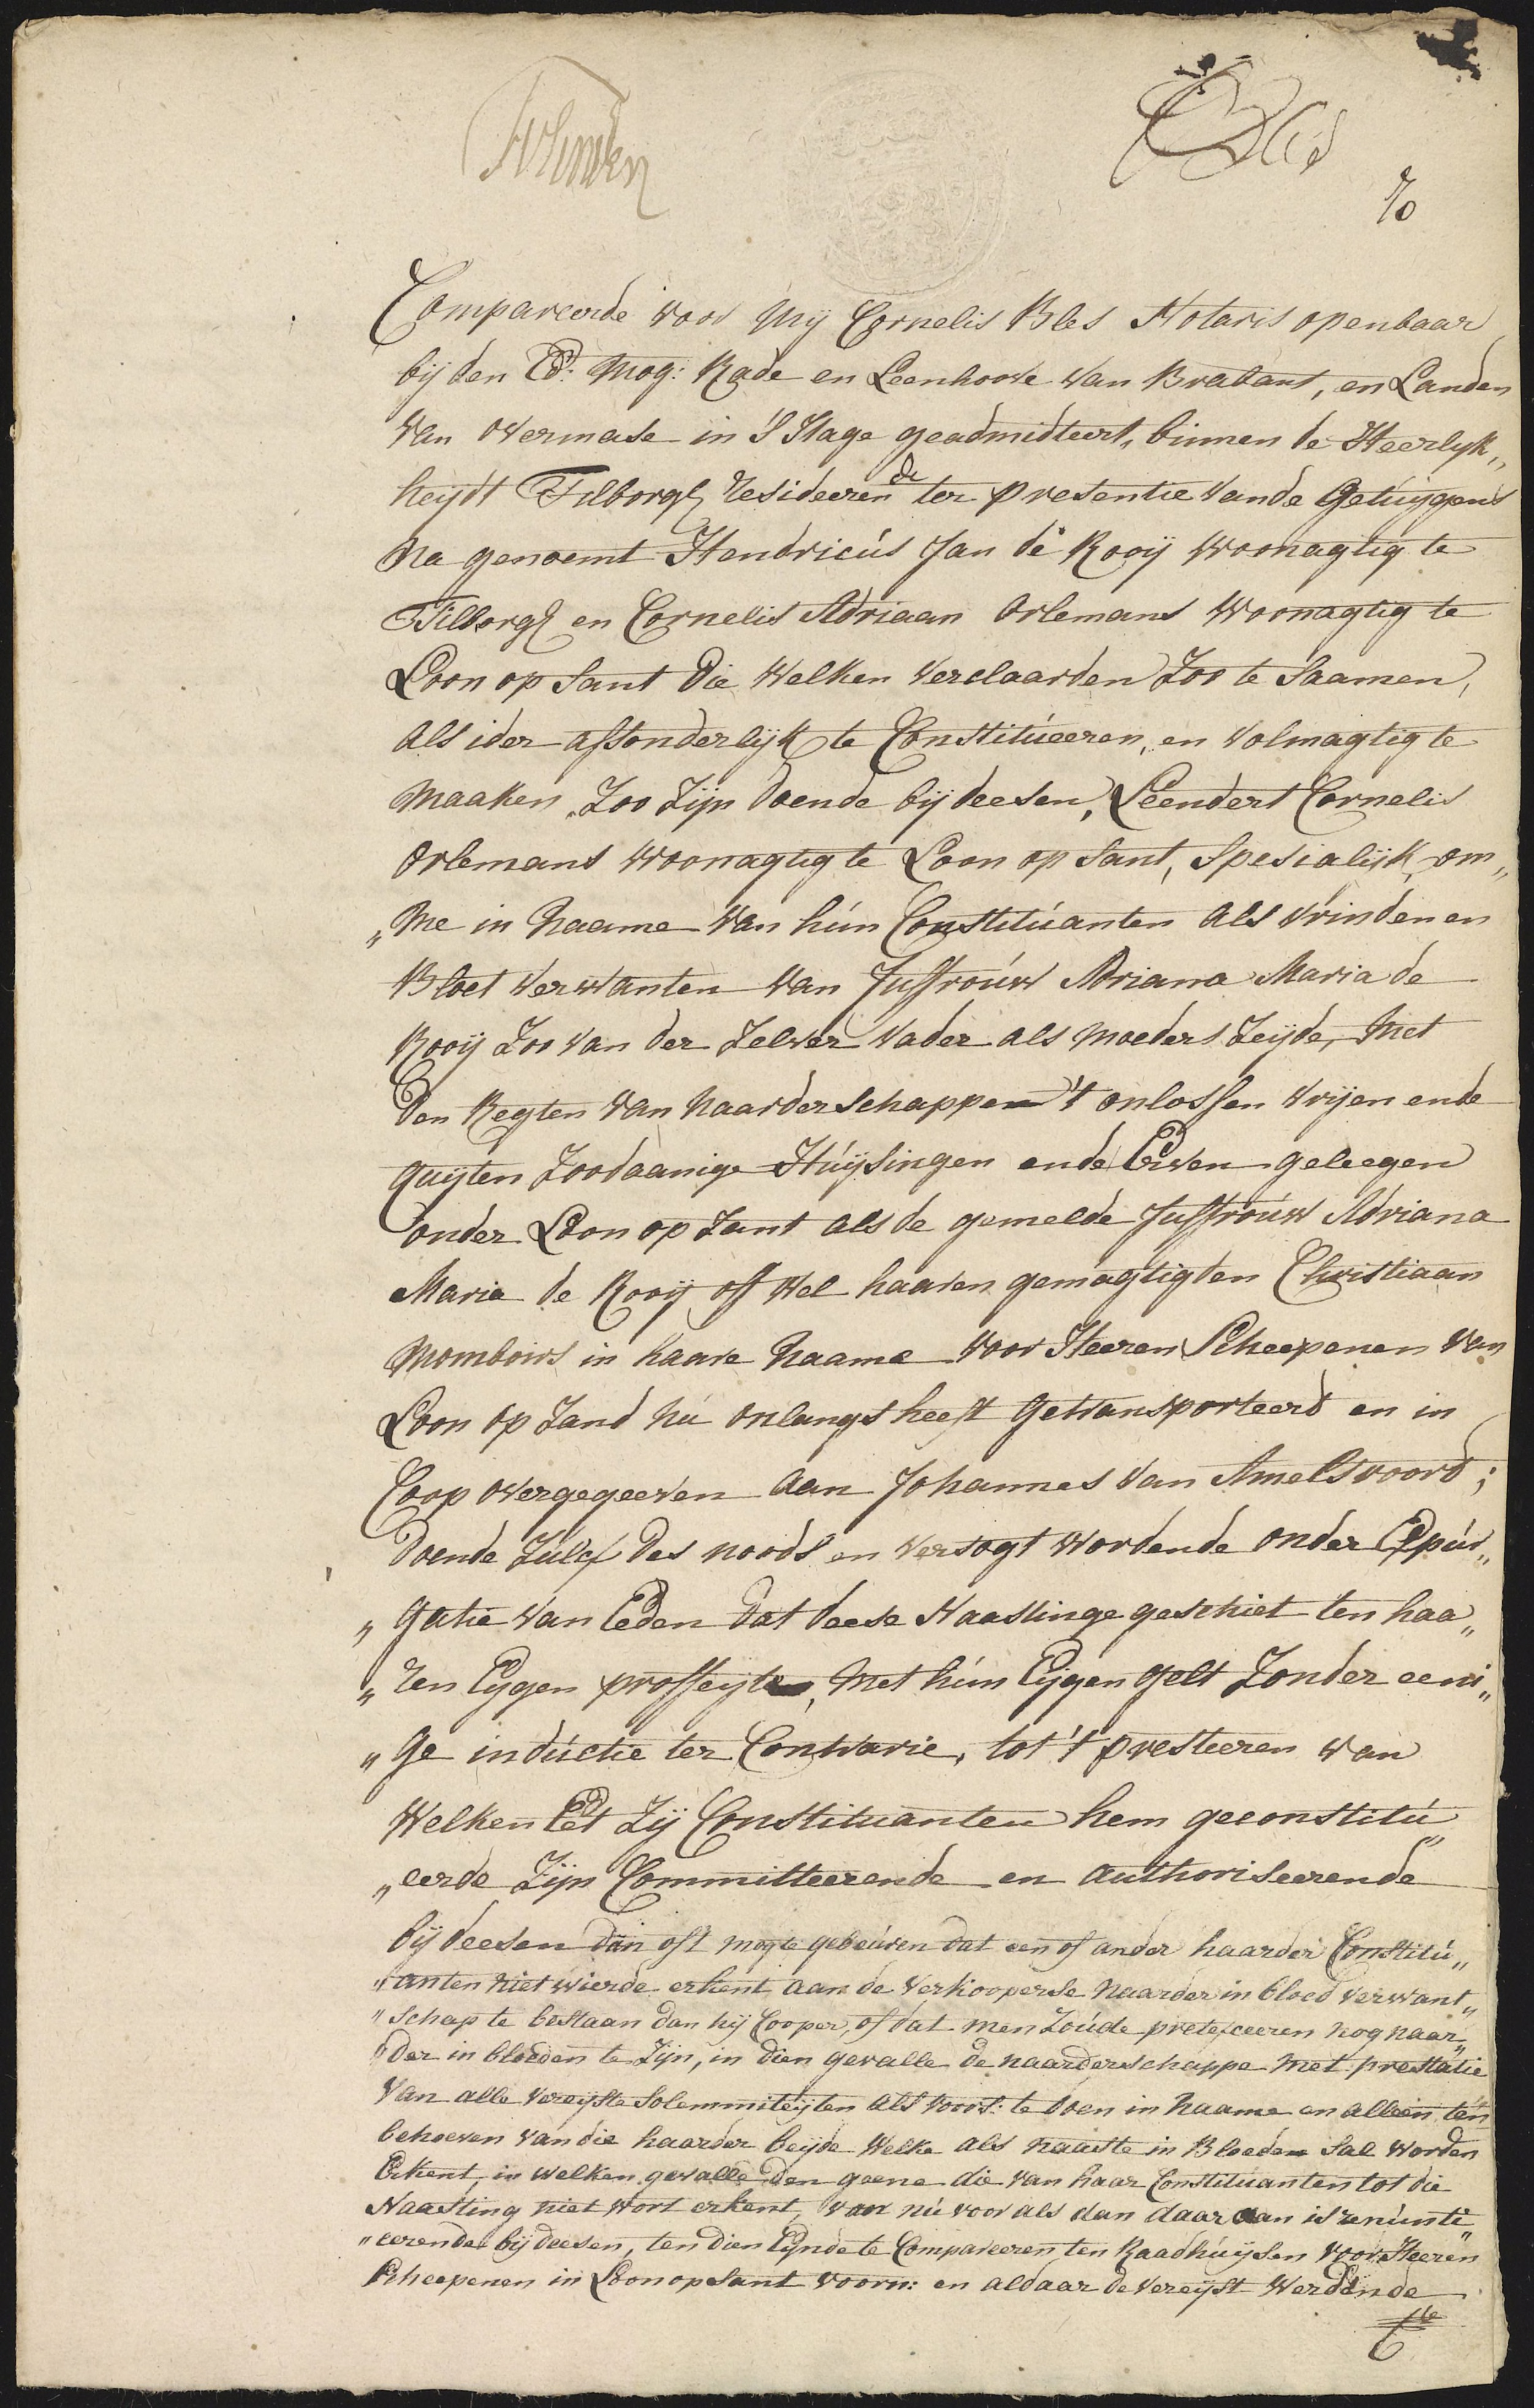 70
Compareerde voor Mij Cornelis Bles Notaris openbaar
bij den Ed: Mog: Rade en Leenhoove van Brabant, en Landen
van Overmase in 'S Hage geadmidteert, binnen de Heerlyk„
heijdt Tilborgh resideerende ter presentie vande Getúijgens
Na genoemt Hendricús Jan de Rooij woonagtig te
Tilborgh en Cornelis Adriaan Orlemans Woonagtig te
Loon op Sant Die Welken Verclaarden Zoo te Saamen,
als ider affonderlijk te Constitúeeren, en Volmagtig te
Maaken, Zoo Zijn doende bij deesen, Leendert Cornelis
Orlemans woonagtig te Loon op Sant, Spesialijk, om„
„me in Naame van hún Constitúanten Als Vrinden en
Bloet Verwanten van Juffroúw Adriana Maria de
Rooij Zoo van der Zelver Vader als Moeders Zeijde, Met
Den Regten van Naarderschappen 't onlossen Vrijen ende
quijten Zoodaanige Húijsingen ende Erven geleegen
onder Loon op Zant als de gemelde Juffroúw Adriana
Maria de Rooij off Wel haaren gemagtigden Christiaan
Mombours in haare Naame Voor Heeren Scheepenen Van
Loon op Zand Nú onlangst heeft Getransporteerd en in
Coop overgegeeven aan Johannes van Amelsvoord;
Doende Zúlcx des noods en versogt wordende onder Expúr„
„gatie van Eeden dat deese Naastinge geschiet ten haa„
„ren Eijgen proffeijte, Met hún Eijgen gelt Zonder eeni„
„ge indúctie ter Contrarie, tot 't presteeren van
Welken Eet Zij Constituanten hem geconstitú„
„eerde Zijn Committeerende en authoriseerende
bij deesen dan oft mogte gebeúren dat een of ander haarder Constitú„
„anten niet wierde erkent aan de Verkooperse Naarder in bloed verwant„
„schap te bestaan dan hij Cooper, of dat men Zoúde pretexeeren nog naar„
„der in bloeden te Zijn, in dien gevalle de naarderschappe met prestatie
Van alle Vereijste Solemniteijten als voors: te doen in Naame en alleen ten
behoeven van die haarder beijde Welke als naaste in Bloeden sal worden
Erkent, in welken gevalle den geene die van haar Constitúanten tot die
Naasting niet wort erkent, van nú voor als dan daar aan is renúnti„
„eerende bij deesen, ten dien Eijnde te Compareeren ten Raadhúijsen voor Heeren
Scheepenen in Loon op Sant voorn: en aldaar de Vereijst Werdende